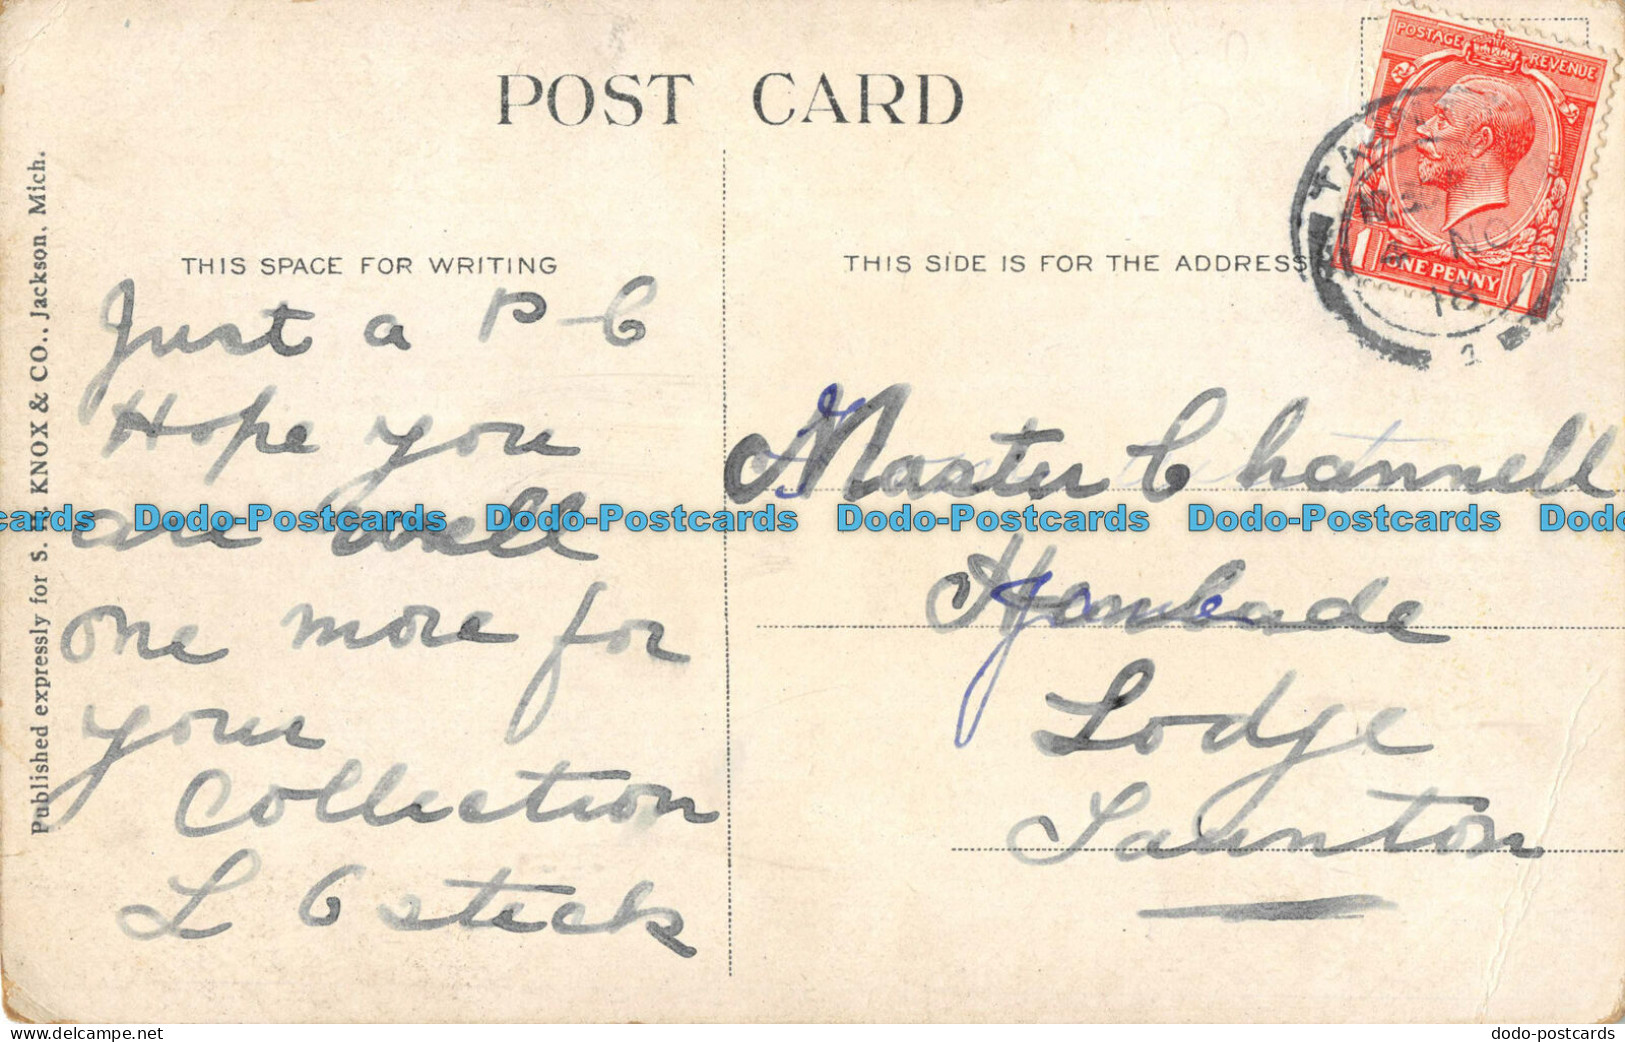 POST CARD
POSTAGE REVENUE
1 ONE PENNY 1
NO
18
1
THIS SPACE FOR WRITING
THIS SIDE IS FOR THE ADDRESS
Published expressly for S. H. KNOX & CO., Jackson, Mich.
Just a P-C
Hope you
are well
one more for
your
Collection
L
Master Channell
Lodge
Taunton
cards Dodo-Postcards Dodo-Postcards Dodo-Postcards Dodo-Postcards Dodo
Delcampe.net
dodo-postcards